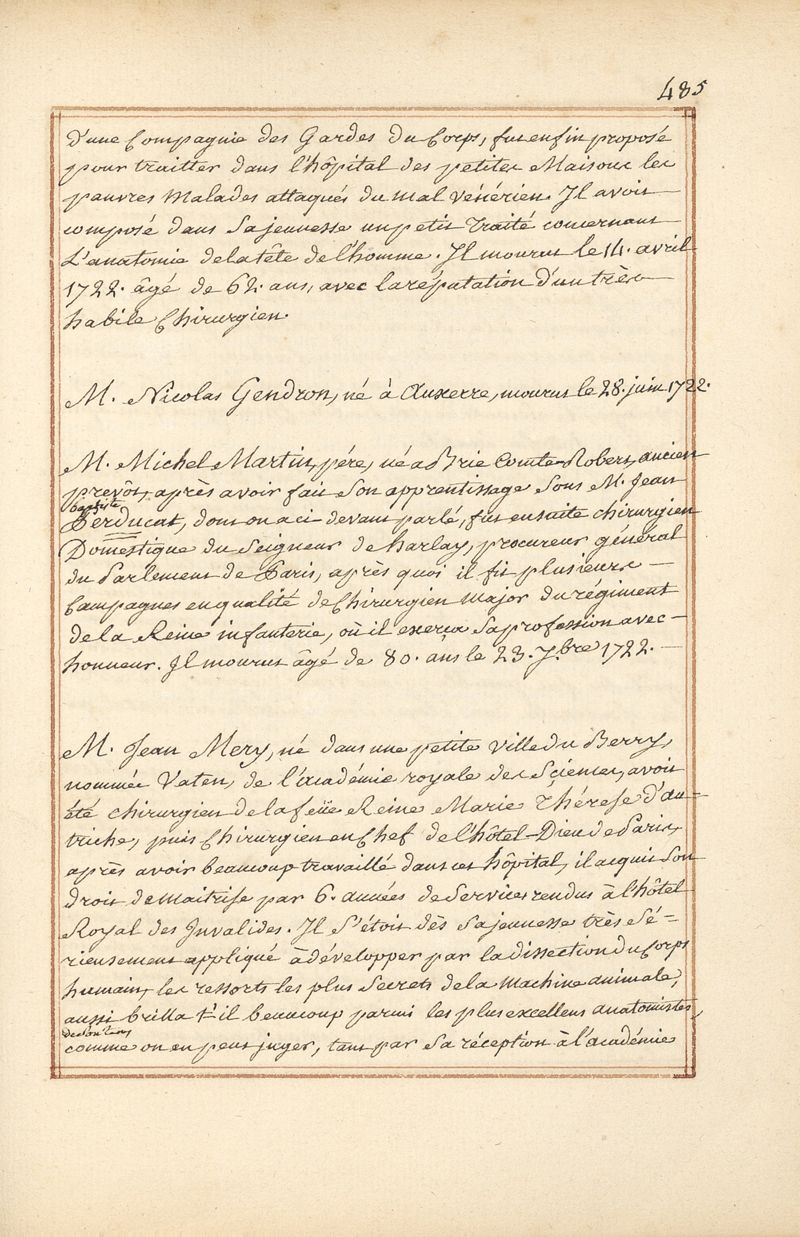 485
d'une Compagnie des Gardes du Corps, fut enfin proposé
pour traitter dans l'hôpital des petites Maisons les
pauvres Malades attaqués du mal vénérien. Il avoit
composé dans sa jeunesse un petit traité concernant
L'anatomie de la tête de l'homme. Il mourut le 14. avril
1722. âgé de 62. ans, avec la réputation d'un très
habile Chirurgien.
M. Nicolas Gendron, né à Auxerre, mourut le 28. juin 1722.
M. Michel Martin, pére, né a Brie Comte-Robert, ancien
prevôt, après avoir fait son apprentissage sous M. Jean
baptiste
Perducat, dont on a ci devant parlé, fut ensuite chirurgien
Domestique du Seigneur de harlay, procureur général
du Parlement de Paris, après quoi il fit plusieurs
Campagnes en qualité de Chirurgien Major du régiment
de la Reine infanterie, où il exerça sa profession avec
honneur. Il mourut âgé de 80. ans le 23. 7.bre 1722.
M. Jean Mery, né dans une petite ville du Berry,
nommée Vaten, de l'académie royale des Sciences, avoit
été chirurgien de la feüe Reine Marie Thérese d'au-
triche, puis Chirurgien en Chef de l'hôtel-Dieu de Paris,
après avoir beaucoup travaillé dans cet hôpital, il acquit son
droit de Maitrise par 6. années de Services rendus à l'hôtel
Royal des Invalides. Il s'étoit dès sa jeunesse très sé-
rieusement appliqué à développer par la dissection du Corps
humain, les ressorts les plus secrets de la Machine animale,
aussi brilla t'il beaucoup parmi les plus excellens anatomistes,
de son tems
comme on en peut juger, tant par sa réception à l'académie